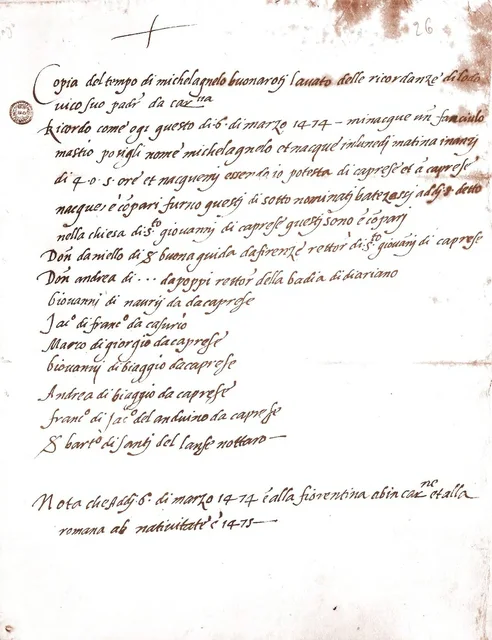 26
Copia del tempo di michelagnelo buonarotj levato delle ricordanze di lodo
vico suo padre da car ta
Ricordo come ogi questo di 6 di marzo 1474 – mi nacque un fanciulo
mastio posigli nome michelagnelo et nacque in lunedj matina inanzj
di 4 o 5 ore et nacquemj essendo io potestà di caprese et a caprese
nacque: e co͂parj furno questj di sotto nominatj batezossj addj 8 detto
nella chiesa di sto giovannj di caprese questj sono e co͂parj
Don daniello di S buonaguida da firenze rettor di sto giovannj di caprese
Don andrea di ... da poppi rettor della badia di diariano
Giovanni di naurij da da caprese
Jaco di franco da casurio
Marco di giorgio da caprese
Giovannj di biaggio da caprese
Andrea di biaggio da caprese
franco di Jaco del anduino da caprese
S barto di santj del lanse nottaro —
Nota che addj 6o di marzo 1474 è alla fiorentina ab incar ne et alla
romana ab nativitate è 1475 —